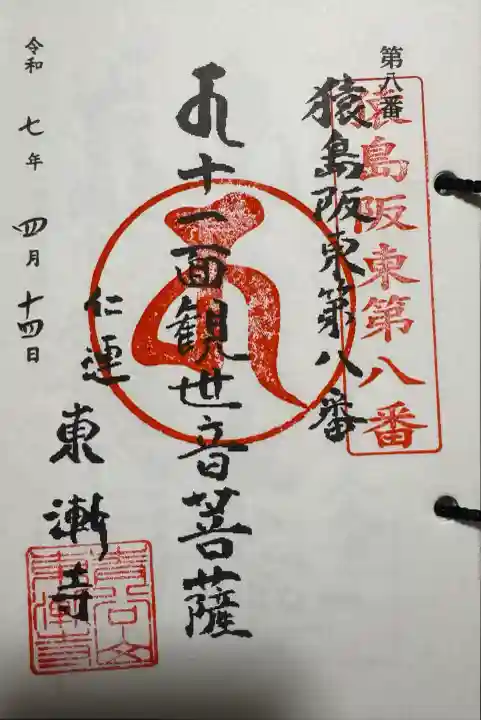 第八番
猿島阪東第八番
猿島阪東第八番
十一面観世音菩薩
仁連 東漸寺
令和 七年 四月 十四日